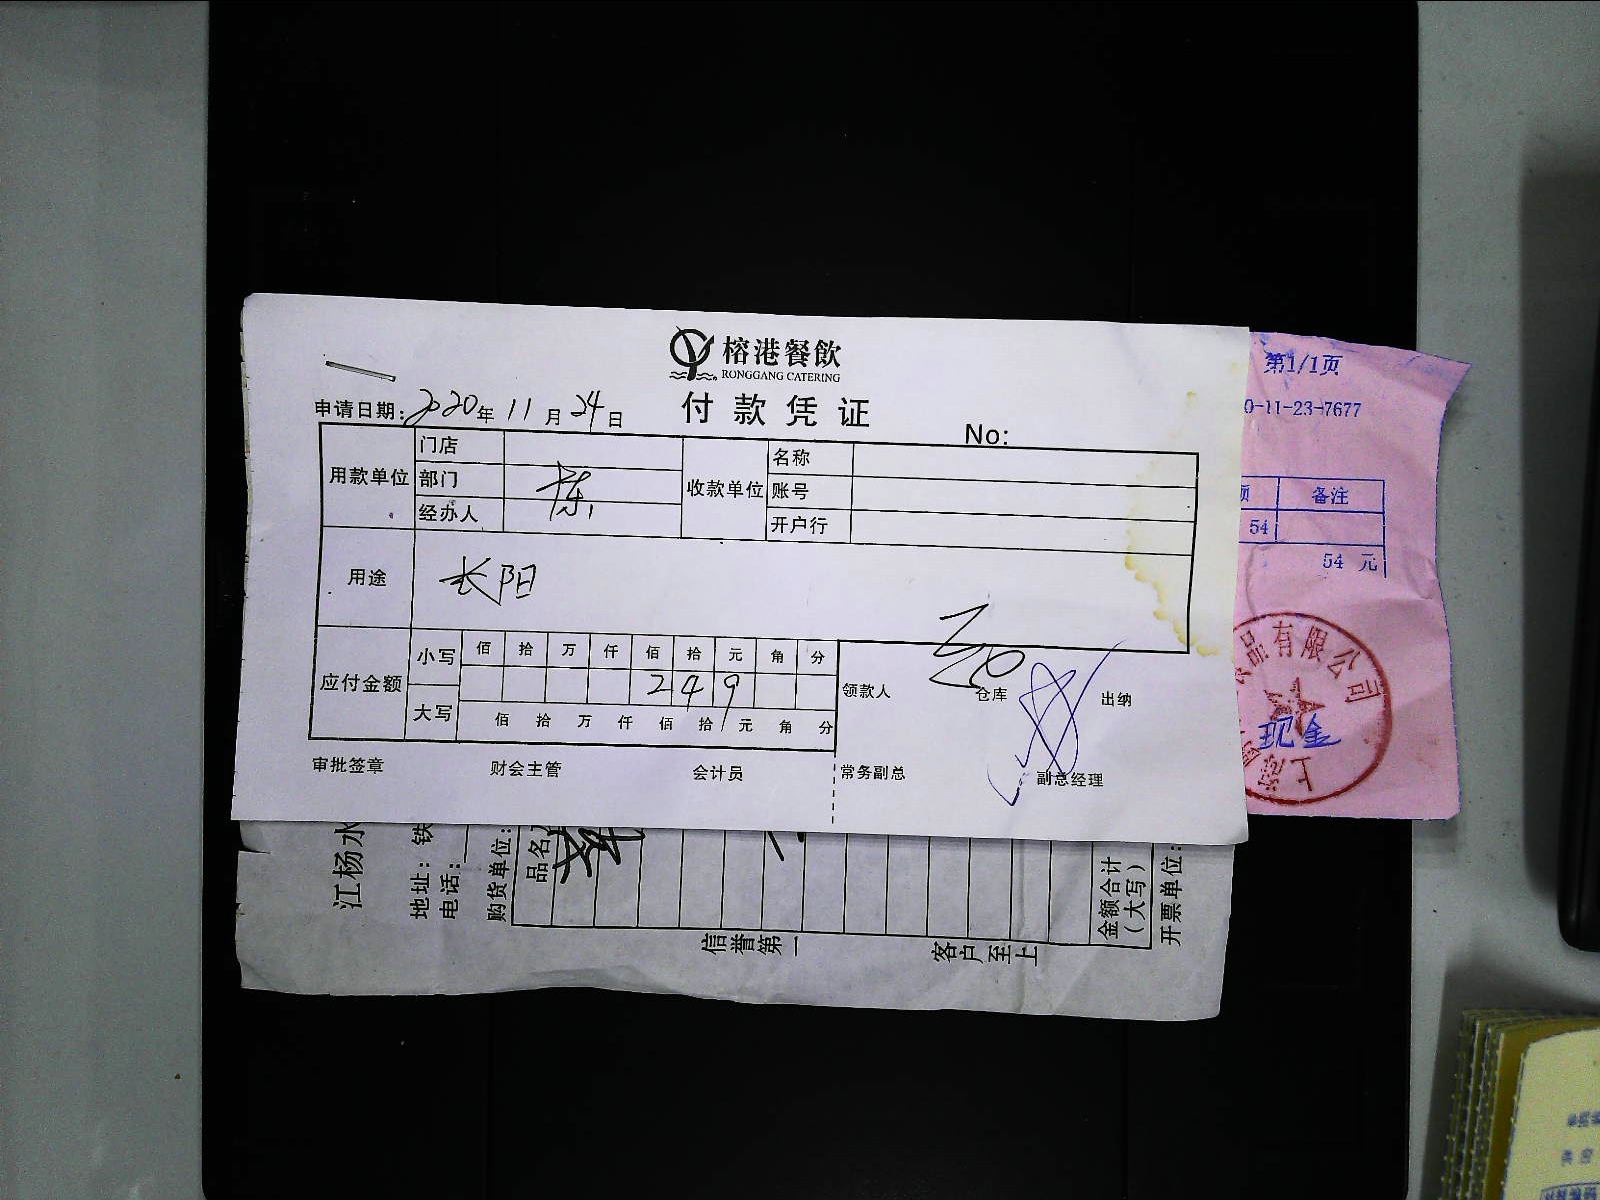 榕港餐飲
RONGGANG CATERING
付款凭证
申请日期：2020年11月24日
No:
用款单位 门店 收款单位 名称
部门 陈 账号
经办人 开户行
用途 长阳
应付金额 小写 佰 拾 万 仟 佰 拾 元 角 分
2 4 9
领款人 仓库 出纳
大写 佰 拾 万 仟 佰 拾 元 角 分
审批签章 财会主管 会计员 常务副总 副总经理
第1/1页
0-11-23-7677
额 备注
54
54 元
品有限公司
上
现金
江杨水
地址：铁
电话：
购货单位：
品名
金额合计
（大写）
开票单位：
信誉第一 客户至上